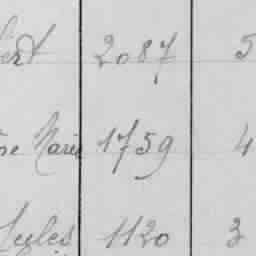 ert 2087 5
se Marie 1759 4
Jules 1120 3